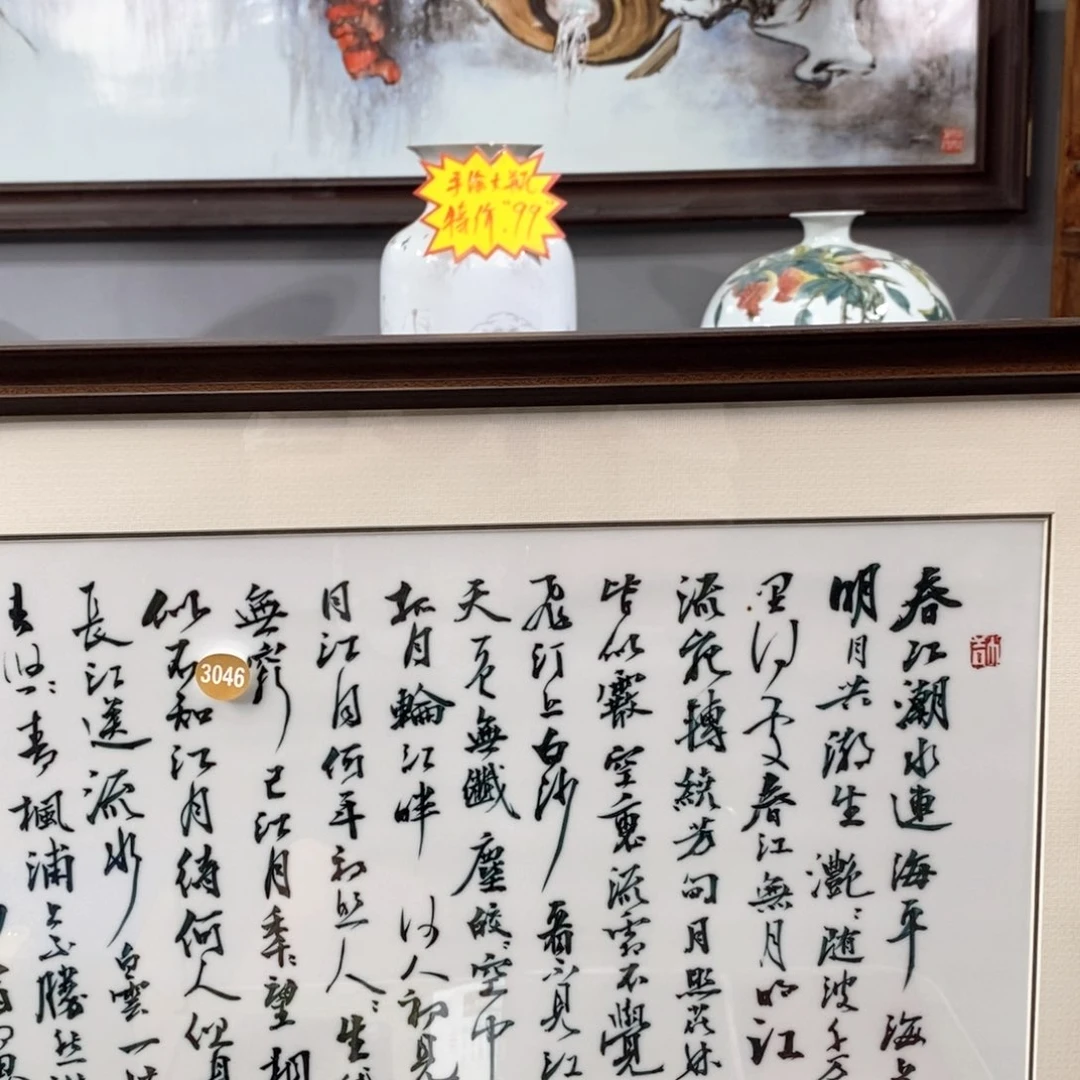 手绘大瓶
特价"99"
春江潮水連海平海上
明月共潮生灩〻随波千万
里何處春江無月明江
流宛轉繞芳甸月照花林
皆似霰空裏流霜不覺
飛汀上白沙看不見江
天一色無纖塵皎〻空中
孤月輪江畔何人初見
月江月何年初照人〻生代
無窮已江月季〻望相
似不知江月待何人但見
長江送流水白雲一片
去悠〻青楓浦上不勝愁誰
3046